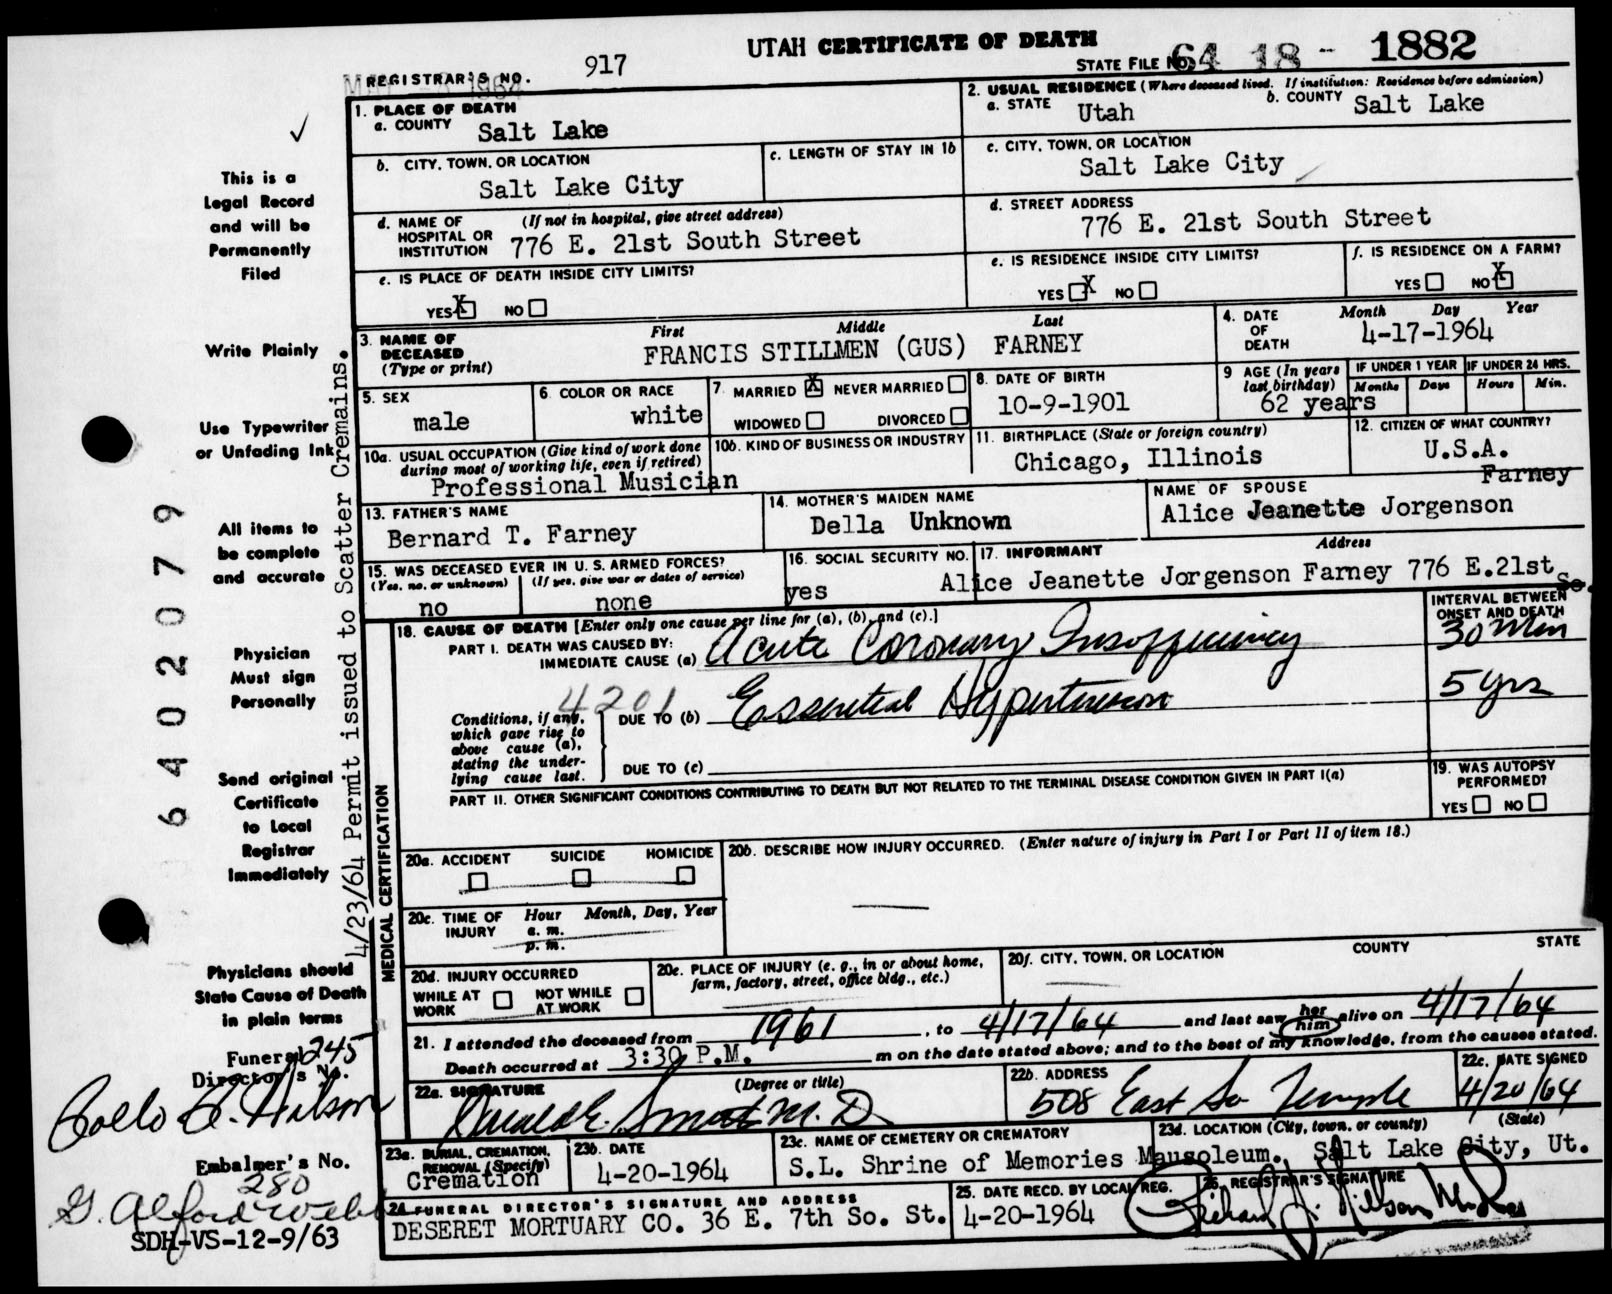 UTAH CERTIFICATE OF DEATH
REGISTRAR'S NO. 917
STATE FILE NO. 64 18 - 1882
1. PLACE OF DEATH
a. COUNTY Salt Lake
2. USUAL RESIDENCE (Where deceased lived. If institution: Residence before admission)
a. STATE Utah b. COUNTY Salt Lake
b. CITY, TOWN, OR LOCATION Salt Lake City
c. LENGTH OF STAY IN 1b
c. CITY, TOWN, OR LOCATION Salt Lake City
d. NAME OF HOSPITAL OR INSTITUTION (If not in hospital, give street address) 776 E. 21st South Street
d. STREET ADDRESS 776 E. 21st South Street
e. IS PLACE OF DEATH INSIDE CITY LIMITS?
YES X NO
e. IS RESIDENCE INSIDE CITY LIMITS?
YES X NO
f. IS RESIDENCE ON A FARM?
YES NO X
3. NAME OF DECEASED (Type or print)
First Middle Last
FRANCIS STILLMEN (GUS) FARNEY
4. DATE OF DEATH Month Day Year
4-17-1964
5. SEX male
6. COLOR OR RACE white
7. MARRIED X NEVER MARRIED
WIDOWED DIVORCED
8. DATE OF BIRTH 10-9-1901
9 AGE (In years last birthday) 62 years
IF UNDER 1 YEAR Months Days
IF UNDER 24 HRS. Hours Min.
10a. USUAL OCCUPATION (Give kind of work done during most of working life, even if retired)
Professional Musician
10b. KIND OF BUSINESS OR INDUSTRY
11. BIRTHPLACE (State or foreign country)
Chicago, Illinois
12. CITIZEN OF WHAT COUNTRY?
U.S.A.
13. FATHER'S NAME
Bernard T. Farney
14. MOTHER'S MAIDEN NAME
Della Unknown
NAME OF SPOUSE
Farney
Alice Jeanette Jorgenson
15. WAS DECEASED EVER IN U. S. ARMED FORCES?
(Yes, no, or unknown) (If yes, give war or dates of service)
no none
16. SOCIAL SECURITY NO.
yes
17. INFORMANT Address
Alice Jeanette Jorgenson Farney 776 E.21st So.
MEDICAL CERTIFICATION
18. CAUSE OF DEATH [Enter only one cause per line for (a), (b), and (c).]
INTERVAL BETWEEN ONSET AND DEATH
PART I. DEATH WAS CAUSED BY:
IMMEDIATE CAUSE (a) Acute Coronary Insufficiency 30 Min
4201
Conditions, if any, which gave rise to above cause (a), stating the underlying cause last.
DUE TO (b) Essential Hypertension 5 yrs
DUE TO (c)
PART II. OTHER SIGNIFICANT CONDITIONS CONTRIBUTING TO DEATH BUT NOT RELATED TO THE TERMINAL DISEASE CONDITION GIVEN IN PART I(a)
19. WAS AUTOPSY PERFORMED?
YES NO
20a. ACCIDENT SUICIDE HOMICIDE
20b. DESCRIBE HOW INJURY OCCURRED. (Enter nature of injury in Part I or Part II of item 18.)
20c. TIME OF INJURY Hour Month, Day, Year
a. m.
p. m.
20d. INJURY OCCURRED
WHILE AT WORK NOT WHILE AT WORK
20e. PLACE OF INJURY (e. g., in or about home, farm, factory, street, office bldg., etc.)
20f. CITY, TOWN, OR LOCATION COUNTY STATE
21. I attended the deceased from 1961, to 4/17/64 and last saw her him alive on 4/17/64
Death occurred at 3:30 P.M. m on the date stated above; and to the best of my knowledge, from the causes stated.
22a. SIGNATURE (Degree or title)
M. D.
22b. ADDRESS
508 East So Temple
22c. DATE SIGNED
4/20/64
23a. BURIAL, CREMATION, REMOVAL (Specify)
Cremation
23b. DATE
4-20-1964
23c. NAME OF CEMETERY OR CREMATORY
S.L. Shrine of Memories Mausoleum.
23d. LOCATION (City, town, or county) (State)
Salt Lake City, Ut.
24. FUNERAL DIRECTOR'S SIGNATURE AND ADDRESS
DESERET MORTUARY CO. 36 E. 7th So. St.
25. DATE RECD. BY LOCAL REG.
4-20-1964
26. REGISTRAR'S SIGNATURE
This is a
Legal Record
and will be
Permanently
Filed
Write Plainly
Use Typewriter
or Unfading Ink
All items to
be complete
and accurate
Physician
Must sign
Personally
Send original
Certificate
to Local
Registrar
Immediately
Physicians should
State Cause of Death
in plain terms
Funeral Director's No. 245
Embalmer's No.
280
SDH-VS-12-9/63
6402079
4/23/64 Permit issued to Scatter Cremains.